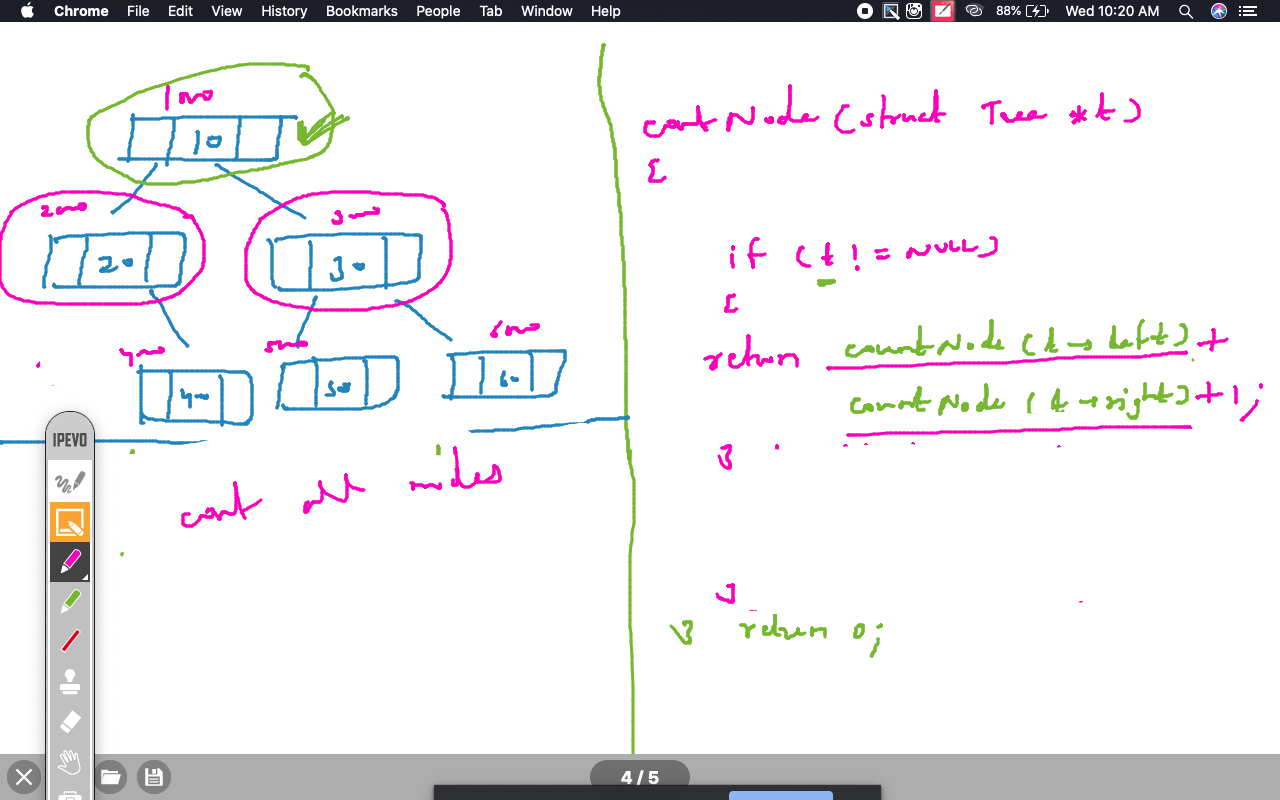 Chrome File Edit View History Bookmarks People Tab Window Help 88% Wed 10:20 AM
1000
10
2000 3000
20 30
4000 5000 6000
40 50 60
count all nodes
countNode (struct Tree *t)
{
if (t != NULL)
{
return countNode (t → left) +
countNode (t → right) + 1;
}
}
} return 0;
IPEVO
4 / 5